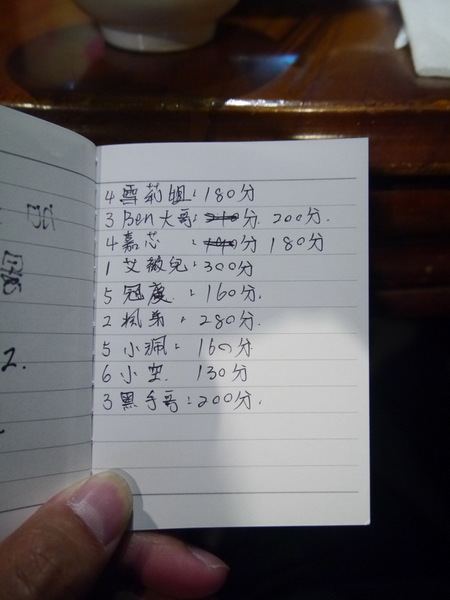 4 雪莉姐：180分
3 Ben大哥：分 200分.
4 嘉芯 ：分 180分
1 艾薇兒：300分
5 冠慶 ：160分.
2 楓弟 ：280分.
5 小珮：160分
6 小空 130分
3 黑手哥：200分.
2.